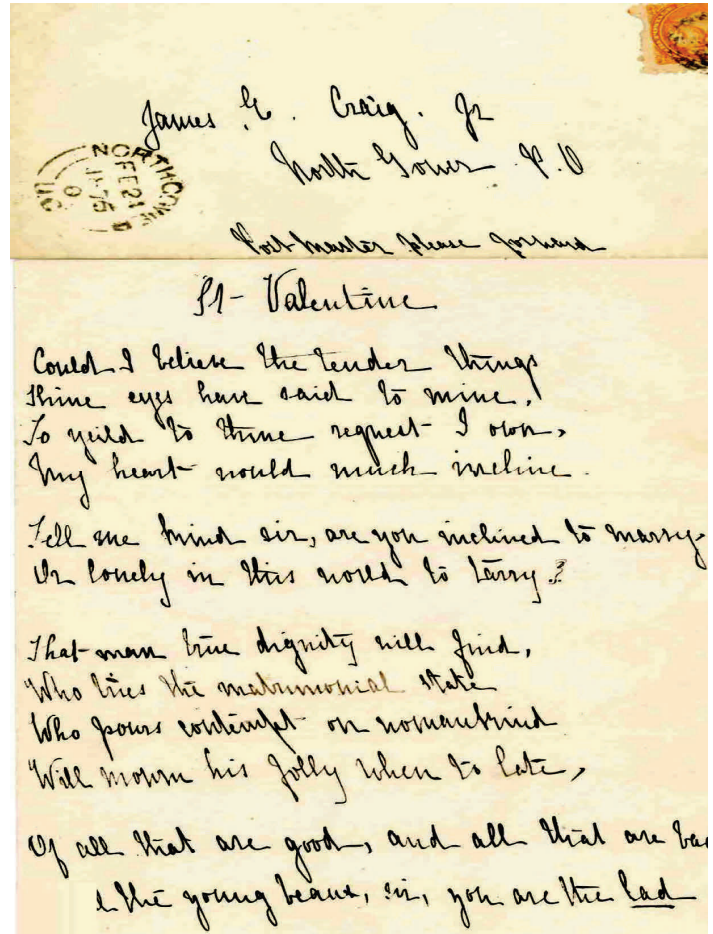 James G. Craig. Jr
North Gower P.O
NORTH GOWER
FE 21
75
Post Master please forward
St- Valentine
Could I believe the tender things
Thine eyes have said to mine,
To yeild to thine request I own,
My heart would much incline.
Tell me kind sir, are you inclined to marry
Or lonely in this world to tarry?
That man true dignity will find,
Who tries the matrimonial state
Who pours contempt on womankind
Will mourn his folly when to late,
Of all that are good, and all that are bad
the young beaux, sir, you are the lad